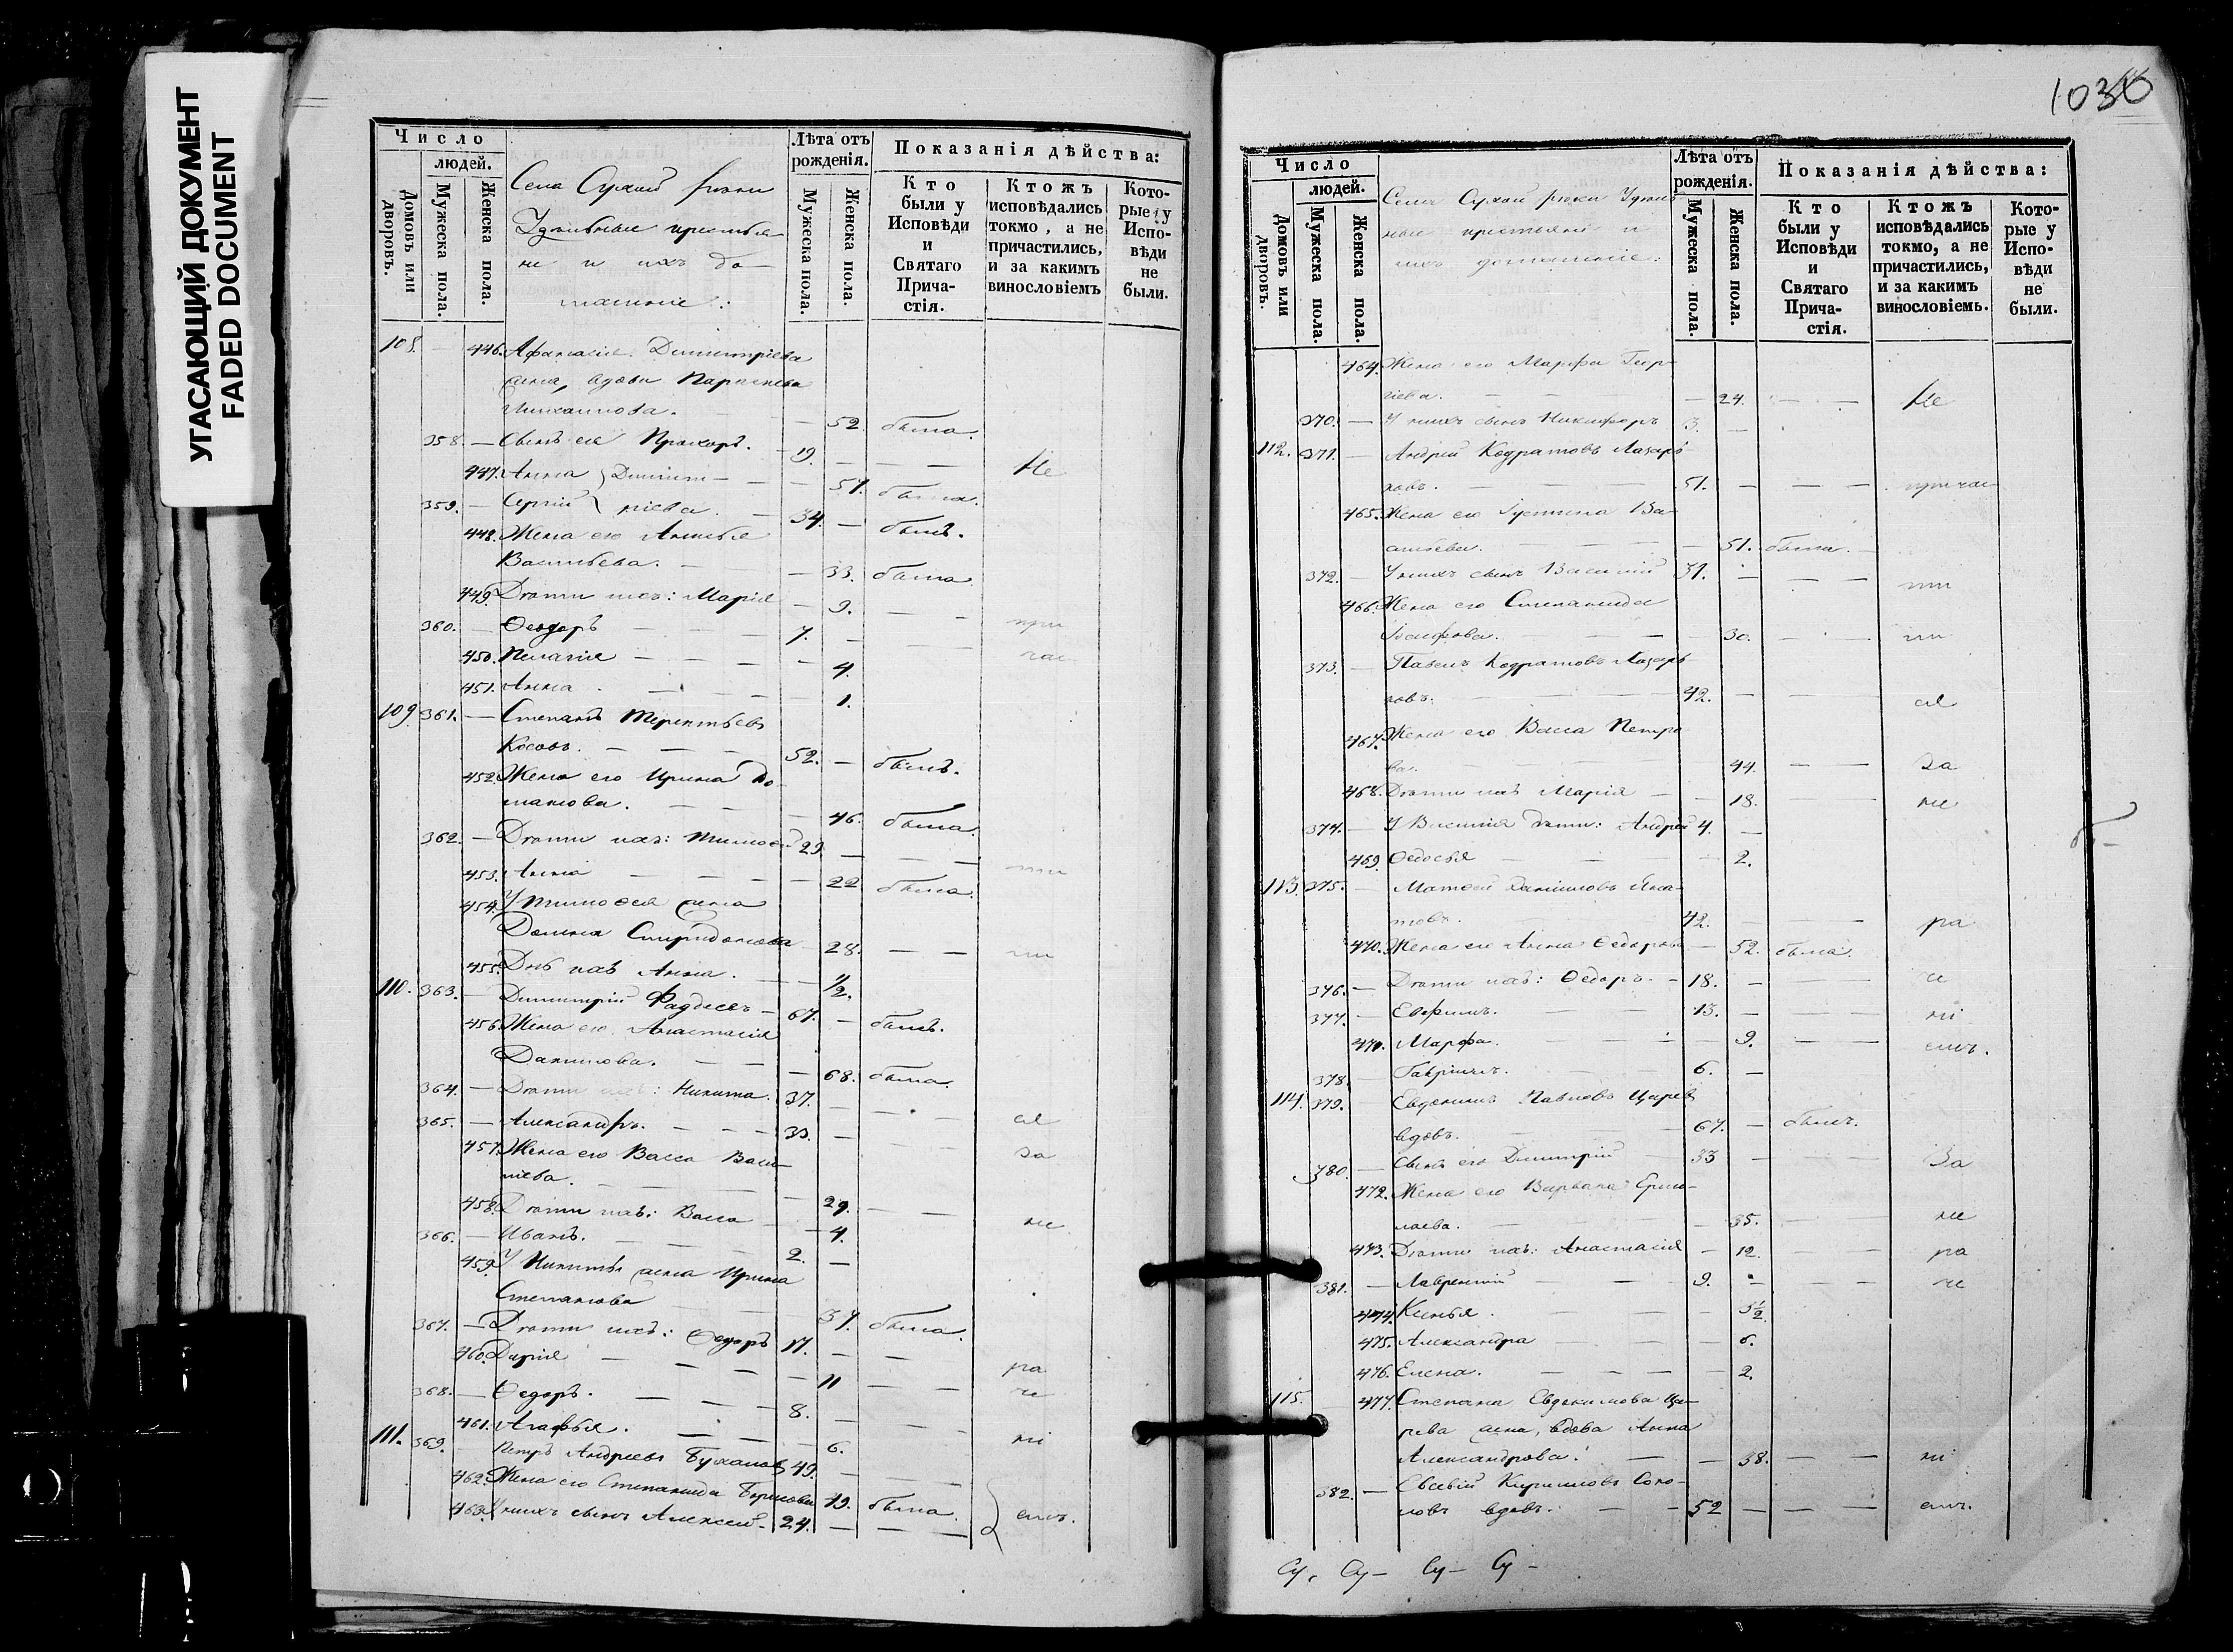 УГАСАЮЩИЙ ДОКУМЕНТ
FADED DOCUMENT
Число
людей.
Домовъ или дворовъ.
Мужеска пола.
Женска пола.
Села Сухой рѣки
Удѣльные крестья-
не и ихъ до-
машніе:
Лѣта отъ рожденія.
Мужеска пола.
Женска пола.
Показанія дѣйства:
Кто были у Исповѣди и Святаго Причастія.
Ктожъ исповѣдались токмо, а не причастились, и за какимъ винословіемъ
Которые у Исповѣди не были.
108. — 446. Афанасія Димитріева
жена, вдова Параскева
Михаилова. — 52. была.
358. — Сынъ ея Прохоръ. 19. — — Не
447. Анна } Димит- — 51. была.
359. — Сергій } ріева. 34. — былъ.
448. Жена его
Васильева. — 33. была.
449. Дѣти ихъ: Марія — 9. — при
360. — Ѳеодоръ 7. —
450. Пелагія — 4. час
451. Анна — 1.
109. 361. — Степанъ Терентьевъ
Косовъ. 52. — былъ.
452. Жена его Ирина Ро-
манова. — 46. была.
362. — Дѣти ихъ: Тимоѳей 29. — —
453. Анна — 22. была. ти
454. У Тимоѳея жена
Домна Спиридонова — 28. — ли
455. Дчь ихъ Анна. — 1/2.
110. 363. — Димитрій Фаддеевъ — 67. — былъ.
456. Жена его Анастасія
Данилова. — 68. была.
364. — Дѣти ихъ: Никита. 37. — —
365. — Александръ. 33. — сѧ
457. Жена его Васса Васи- за
лієва. — 29. —
458. Дѣти ихъ: Васса — 4. не
366. — Иванъ. 2. —
459. У Никиты жена Ирина
Степанова — 37. была.
367. — Дѣти ихъ: Ѳедоръ 17. —
460. Дарія — 11 — ра
368. — Ѳедоръ. 8. — че
461. Агафья. — 6. — ні
111. 369. — Петръ Андреевъ 49. —
462. Жена его Степанида Борисова 49. была.
463. У нихъ сынъ Алексей 24. — — емъ.
1036
Число
людей.
Домовъ или дворовъ.
Мужеска пола.
Женска пола.
Села Сухой рѣки Удѣль-
ные крестьяне и
ихъ домашніе:
Лѣта отъ рожденія.
Мужеска пола.
Женска пола.
Показанія дѣйства:
Кто были у Исповѣди и Святаго Причастія.
Ктожъ исповѣдались токмо, а не причастились, и за какимъ винословіемъ.
Которые у Исповѣди не были.
464. Жена его Марфа Геор-
гіева. — 24. — Не
370. — У нихъ сынъ Никифоръ 3. —
112. 371. — Андрей Кодратовъ Лазаръ
ковъ. 51. — — причас
465. Жена его Іустина Ва-
сильева. — 51. была.
372. — У нихъ сынъ Василій 31. — — ти
466. Жена его Степанида
Іосифова. — 30. — ли
373. — Павелъ Кодратовъ Лазарь
ковъ. 42. — — сѧ
467. Жена его Васса Петро
ва. — 44. — за
468. Дѣти ихъ Марія — 18. — не
374. — У Василія дѣти: Андрей 4. —
469. Ѳедосья — 2.
113. 375. — Матѳей Даниловъ Игна-
товъ. 42. — — ра
470. Жена его Анна Ѳедорова — 52. была.
376. — Дѣти ихъ: Ѳедоръ — 18. — че
377. — Евфимъ. 13. — — ні
471. Марфа. — 9. — емъ.
378. — Гавріилъ. 6. —
114. 379. — Евдокимъ Павловъ Царевъ
вдовъ. 67. — былъ.
380. — Сынъ его Димитрій 33 — — За
472. Жена его Варвара Ермо-
лаева. — 35. — не
473. Дѣти ихъ: Анастасія — 12. — ра
381. — Лаврентій 9. — — че
474. Ксенья. — 5 1/2.
475. Александра — 6.
476. Елена. — 2.
115. 477. Степана Евдокимова Ца-
рева жена, вдова Анна
Александрова. — 38. — ні
382. — Евсевій Кириловъ Соко-
ловъ вдовъ. 52 — — емъ.